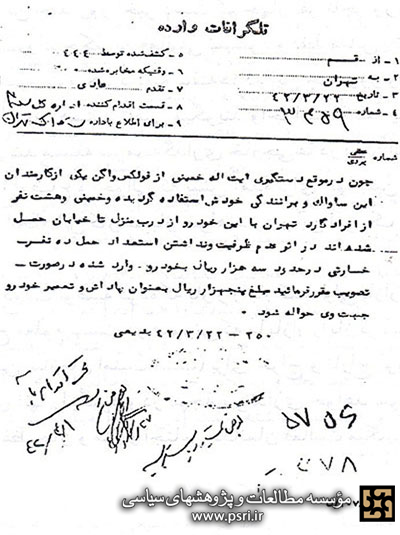 تلگرافات وارده
۱ـ از قم
۲ـ به تهران
۳ـ تاریخ ۴۲/۳/۲۲
۴ـ شماره
۵ـ کشف شده توسط ۴۴۴
۶ـ وقتیکه مخابره شده
۷ـ تقدم عادی
۸ـ قسمت اقدام کننده اداره کل
۹ـ برای اطلاع باداره
شماره
چون درموقع دستگیری آیت اله خمینی از فولکس واگن یکی ازکارمندان
این ساواک و برانندگی خودش استفاده گردیده وخمینی وهشت نفر
از افراد گارد تهران با این خودرو از درب منزل تا خیابان حمل
شده اند در اثر عدم ظرفیت ونداشتن استعداد حمل ده نفر
خسارتی درحدود سه هزار ریال بخودرو وارد شده درصورت
تصویب مقررفرمائید مبلغ پنجهزار ریال بعنوان پاداش وتعمیر خودرو
جهت وی حواله شود .
۲۵۰ - ۴۲/۳/۲۲ بدیعی
مؤسسه مطالعات و پژوهشهای سیاسی
www.psri.ir